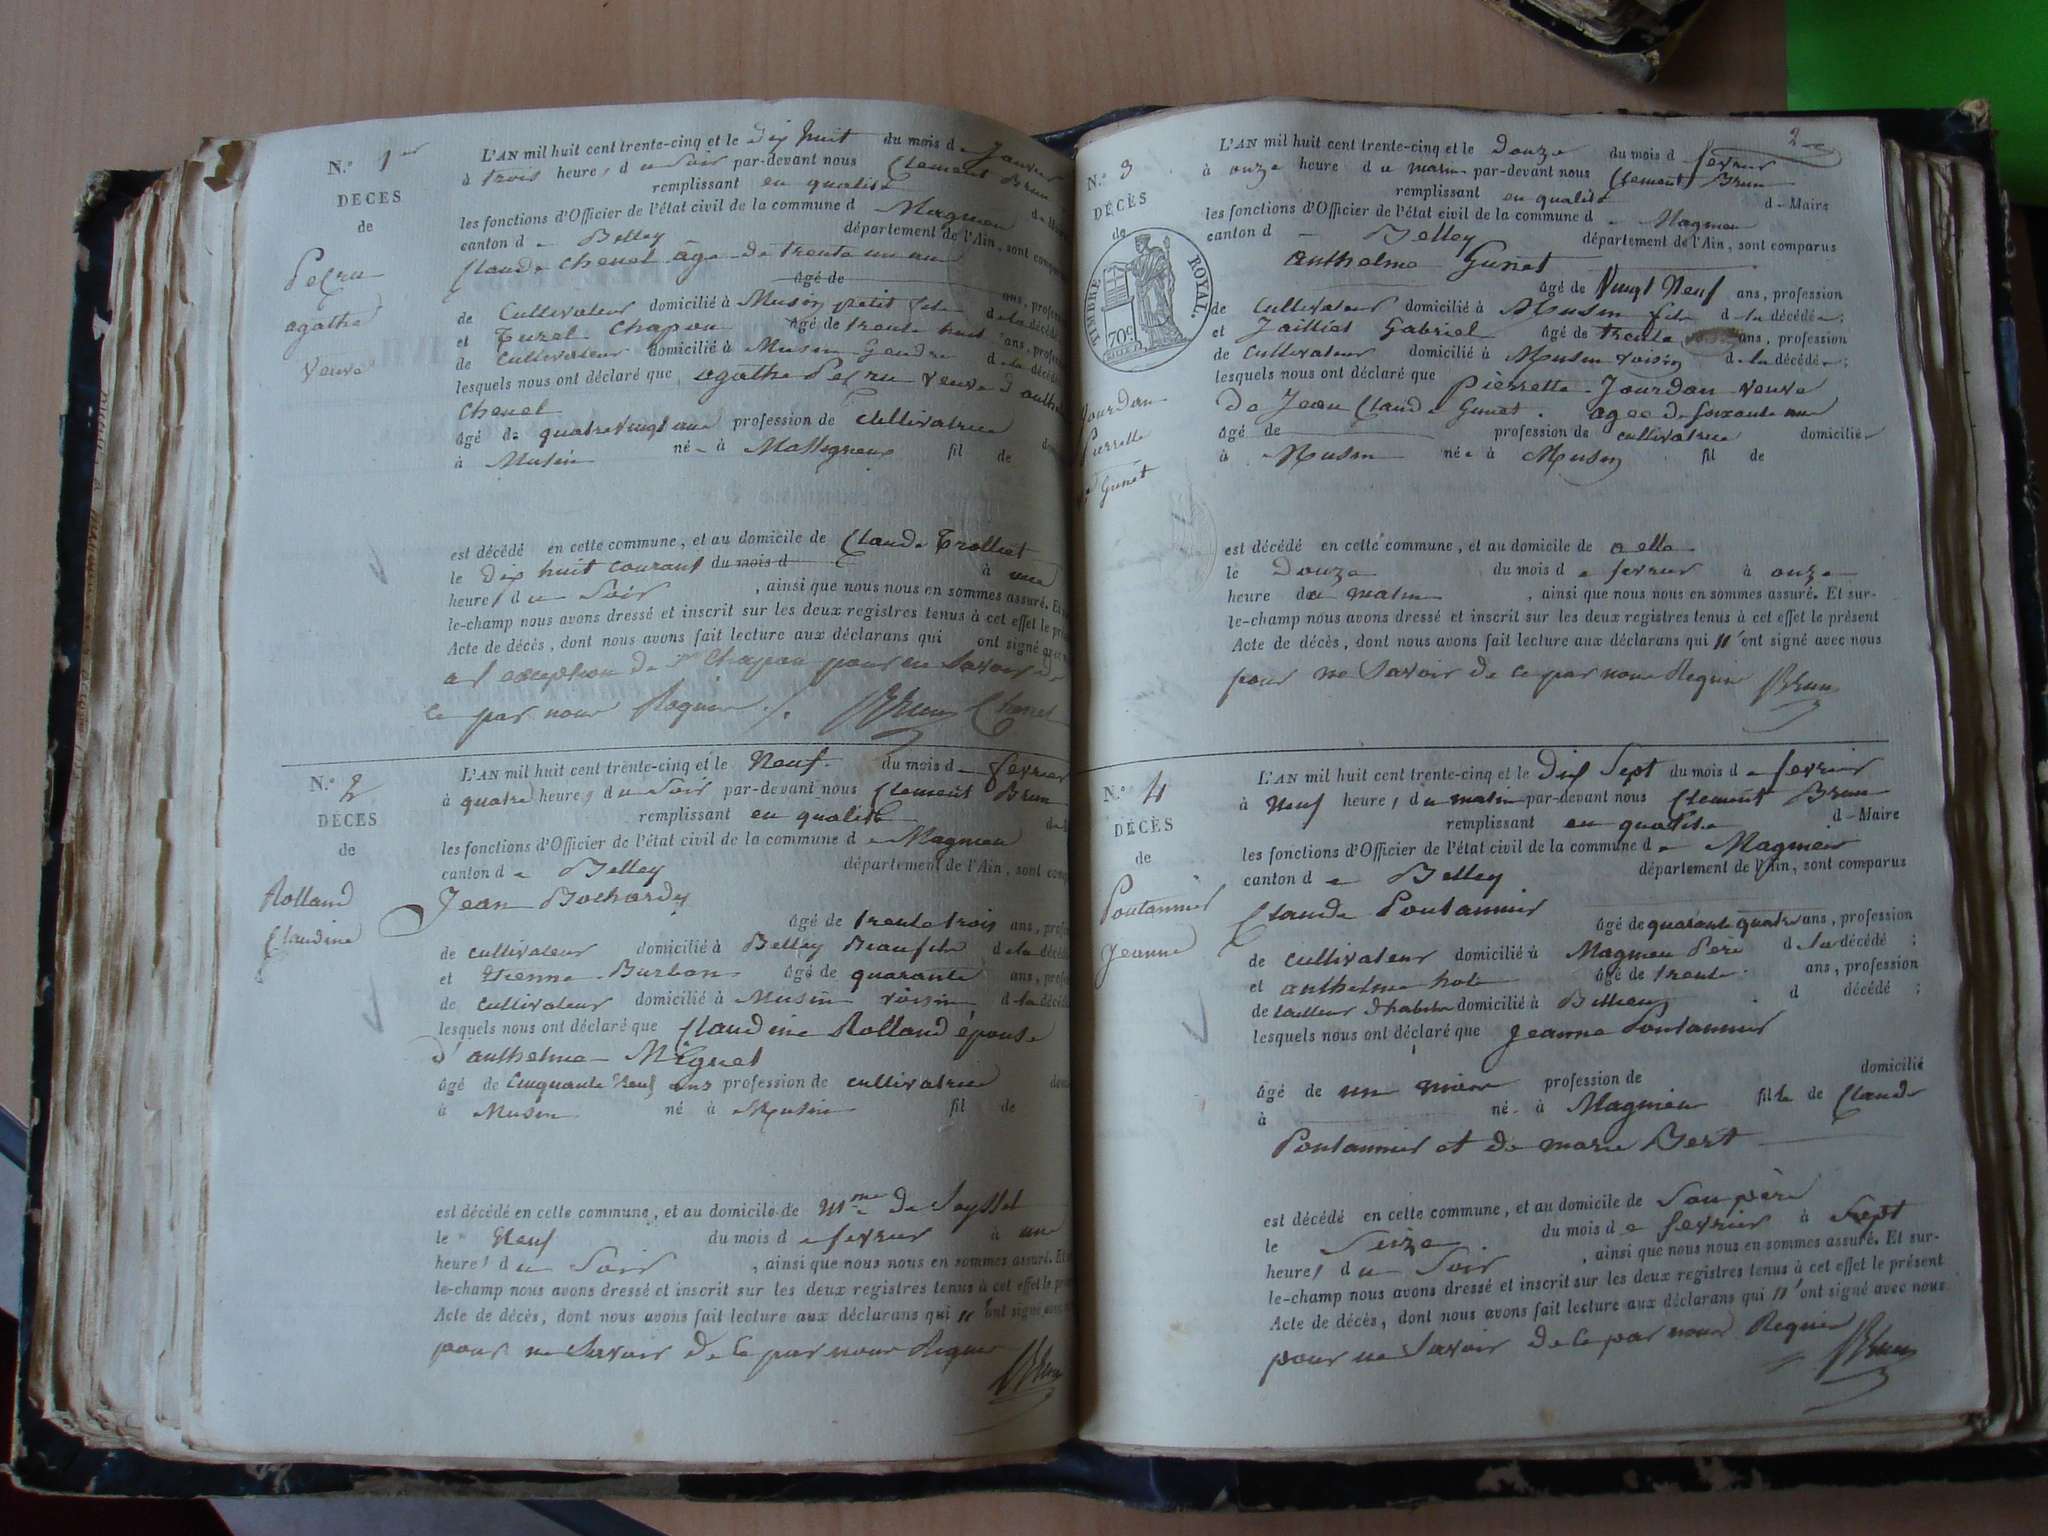 N.º 1er
DECES
de
Pecru
agathe
Veuve
L'AN mil huit cent trente-cinq et le dix huit du mois de Janvier
à trois heures du Soir par-devant nous Clement Brun
remplissant en qualité de Maire
les fonctions d'Officier de l'état civil de la commune d Magnieu
canton de Belley département de l'Ain, sont comparus
Claude Chenel âgé de trente un ans
âgé de ans, profession
de Cultivateur domicilié à Musin petit fils de la décédée
et Turel Chapon âgé de trente huit ans, profession
de cultivateur domicilié à Musin Gendre de la décédée
lesquels nous ont déclaré que agathe Pecru veuve d'anthelme
Chenel
âgé de quatre vingt une profession de Cultivatrice
à Musin né à Massignieux fil de
est décédé en cette commune, et au domicile de Claude Trolliet
le Dix huit courant du mois d à une
heure, du Soir, ainsi que nous nous en sommes assuré. Et sur-
le-champ nous avons dressé et inscrit sur les deux registres tenus à cet effet le présent
Acte de décès, dont nous avons fait lecture aux déclarans qui ont signé avec nous
a l'exception de Chapon pour ne Savoir de
ce par nous Requis ./. Brun Chenel
N.º 2
DÉCES
de
Rolland
Claudine
L'AN mil huit cent trente-cinq et le Neuf du mois de fevrier
à quatre heures du Soir par-devant nous Clement Brun
remplissant en qualité
les fonctions d'Officier de l'état civil de la commune de Magnieu
canton de Belley département de l'Ain, sont comparus
Jean Bochardy
âgé de trente trois ans, profession
de cultivateur domicilié à Belley Beaufils de la décédée
et Etienne Burbon âgé de quarante ans, profession
de cultivateur domicilié à Musin voisin de la décédée
lesquels nous ont déclaré que Claudine Rolland épouse
d'anthelme Miguet
âgé de Cinquante Neuf ans profession de cultivatrice
à Musin né à Musin fil de
est décédé en cette commune, et au domicile de Mme de Seyssel
le Neuf du mois de fevrier à une
heure, du Soir, ainsi que nous nous en sommes assuré. Et
le-champ nous avons dressé et inscrit sur les deux registres tenus à cet effet le présent
Acte de décès, dont nous avons fait lecture aux déclarans qui n'ont signé avec nous
pour ne Savoir de Ce par nous Requis
Brun
2
N.º 3
DÉCÈS
de
TIMBRE ROYAL.
70c
Jourdan
Pierrette
Ve Gunet
L'AN mil huit cent trente-cinq et le Douze du mois d fevrier
à onze heure du matin par-devant nous Clement Brun
remplissant en qualité d- Maire
les fonctions d'Officier de l'état civil de la commune de Magnieu
canton d Belley département de l'Ain, sont comparus
anthelme Gunet
âgé de Vingt Neuf ans, profession
de Cultivateur domicilié à Musin fils d la décédée;
et Jailliet Gabriel âgé de trente ans, profession
de cultivateur domicilié à Musin voisin de la décédé;
lesquels nous ont déclaré que Pierrette Jourdan veuve
de Jean Claude Gunet. agée de soixante ans
âgé de profession de cultivatrice domicilié
à Musin née à Musin fil de
est décédé en cette commune, et au domicile de a elle
le Douze du mois de fevrier à onze
heure du matin, ainsi que nous nous en sommes assuré. Et sur-
le-champ nous avons dressé et inscrit sur les deux registres tenus à cet effet le présent
Acte de décès, dont nous avons fait lecture aux déclarans qui n'ont signé avec nous
pour ne Savoir de ce par nous Requis Brun
N.º 4
DÉCÈS
de
Poutannier
Jeanne
L'AN mil huit cent trente-cinq et le Dix Sept du mois de fevrier
à Neuf heures du matin par-devant nous Clement Brun
remplissant en qualité d- Maire
les fonctions d'Officier de l'état civil de la commune de Magnieu
canton de Belley département de l'Ain, sont comparus
Claude Poutannier
âgé de quarante quatre ans, profession
de cultivateur domicilié à Magnieu Pere de la décédé;
et anthelme hote âgé de trente ans, profession
de tailleur d'habits domicilié à Billieu d décédé;
lesquels nous ont déclaré que Jeanne Poutannier
âgé de un mois profession de domicilié
à né à Magnieu fille de Claude
Poutannier et de marie Bert
est décédé en cette commune, et au domicile de Son père
le Seize du mois de fevrier à Sept
heures du Soir, ainsi que nous nous en sommes assuré. Et sur-
le-champ nous avons dressé et inscrit sur les deux registres tenus à cet effet le présent
Acte de décès, dont nous avons fait lecture aux déclarans qui n'ont signé avec nous
pour ne Savoir de Ce par nous Requis Brun